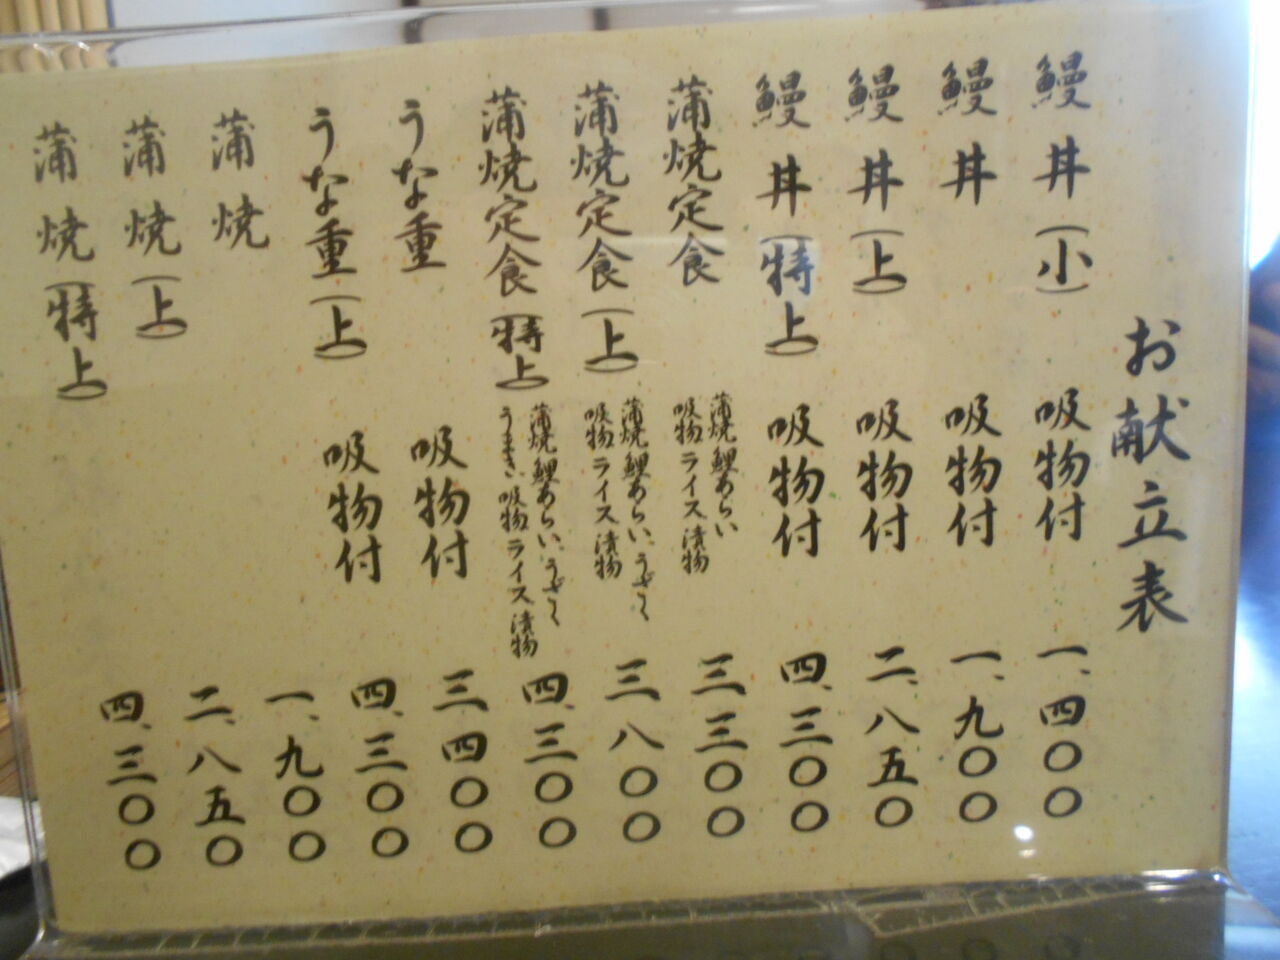 お献立表
鰻丼(小) 吸物付 一、四〇〇
鰻丼 吸物付 一、九〇〇
鰻丼(上) 吸物付 二、八五〇
鰻丼(特上) 吸物付 四、三〇〇
蒲焼定食 蒲焼 鯉あらい 吸物 ライス 漬物 三、三〇〇
蒲焼定食(上) 蒲焼 鯉あらい、うざく 吸物 ライス 漬物 三、八〇〇
蒲焼定食(特上) 蒲焼 鯉あらい、うざく うまき、吸物 ライス 漬物 四、三〇〇
うな重 吸物付 三、四〇〇
うな重(上) 吸物付 四、三〇〇
蒲焼 一、九〇〇
蒲焼(上) 二、八五〇
蒲焼(特上) 四、三〇〇